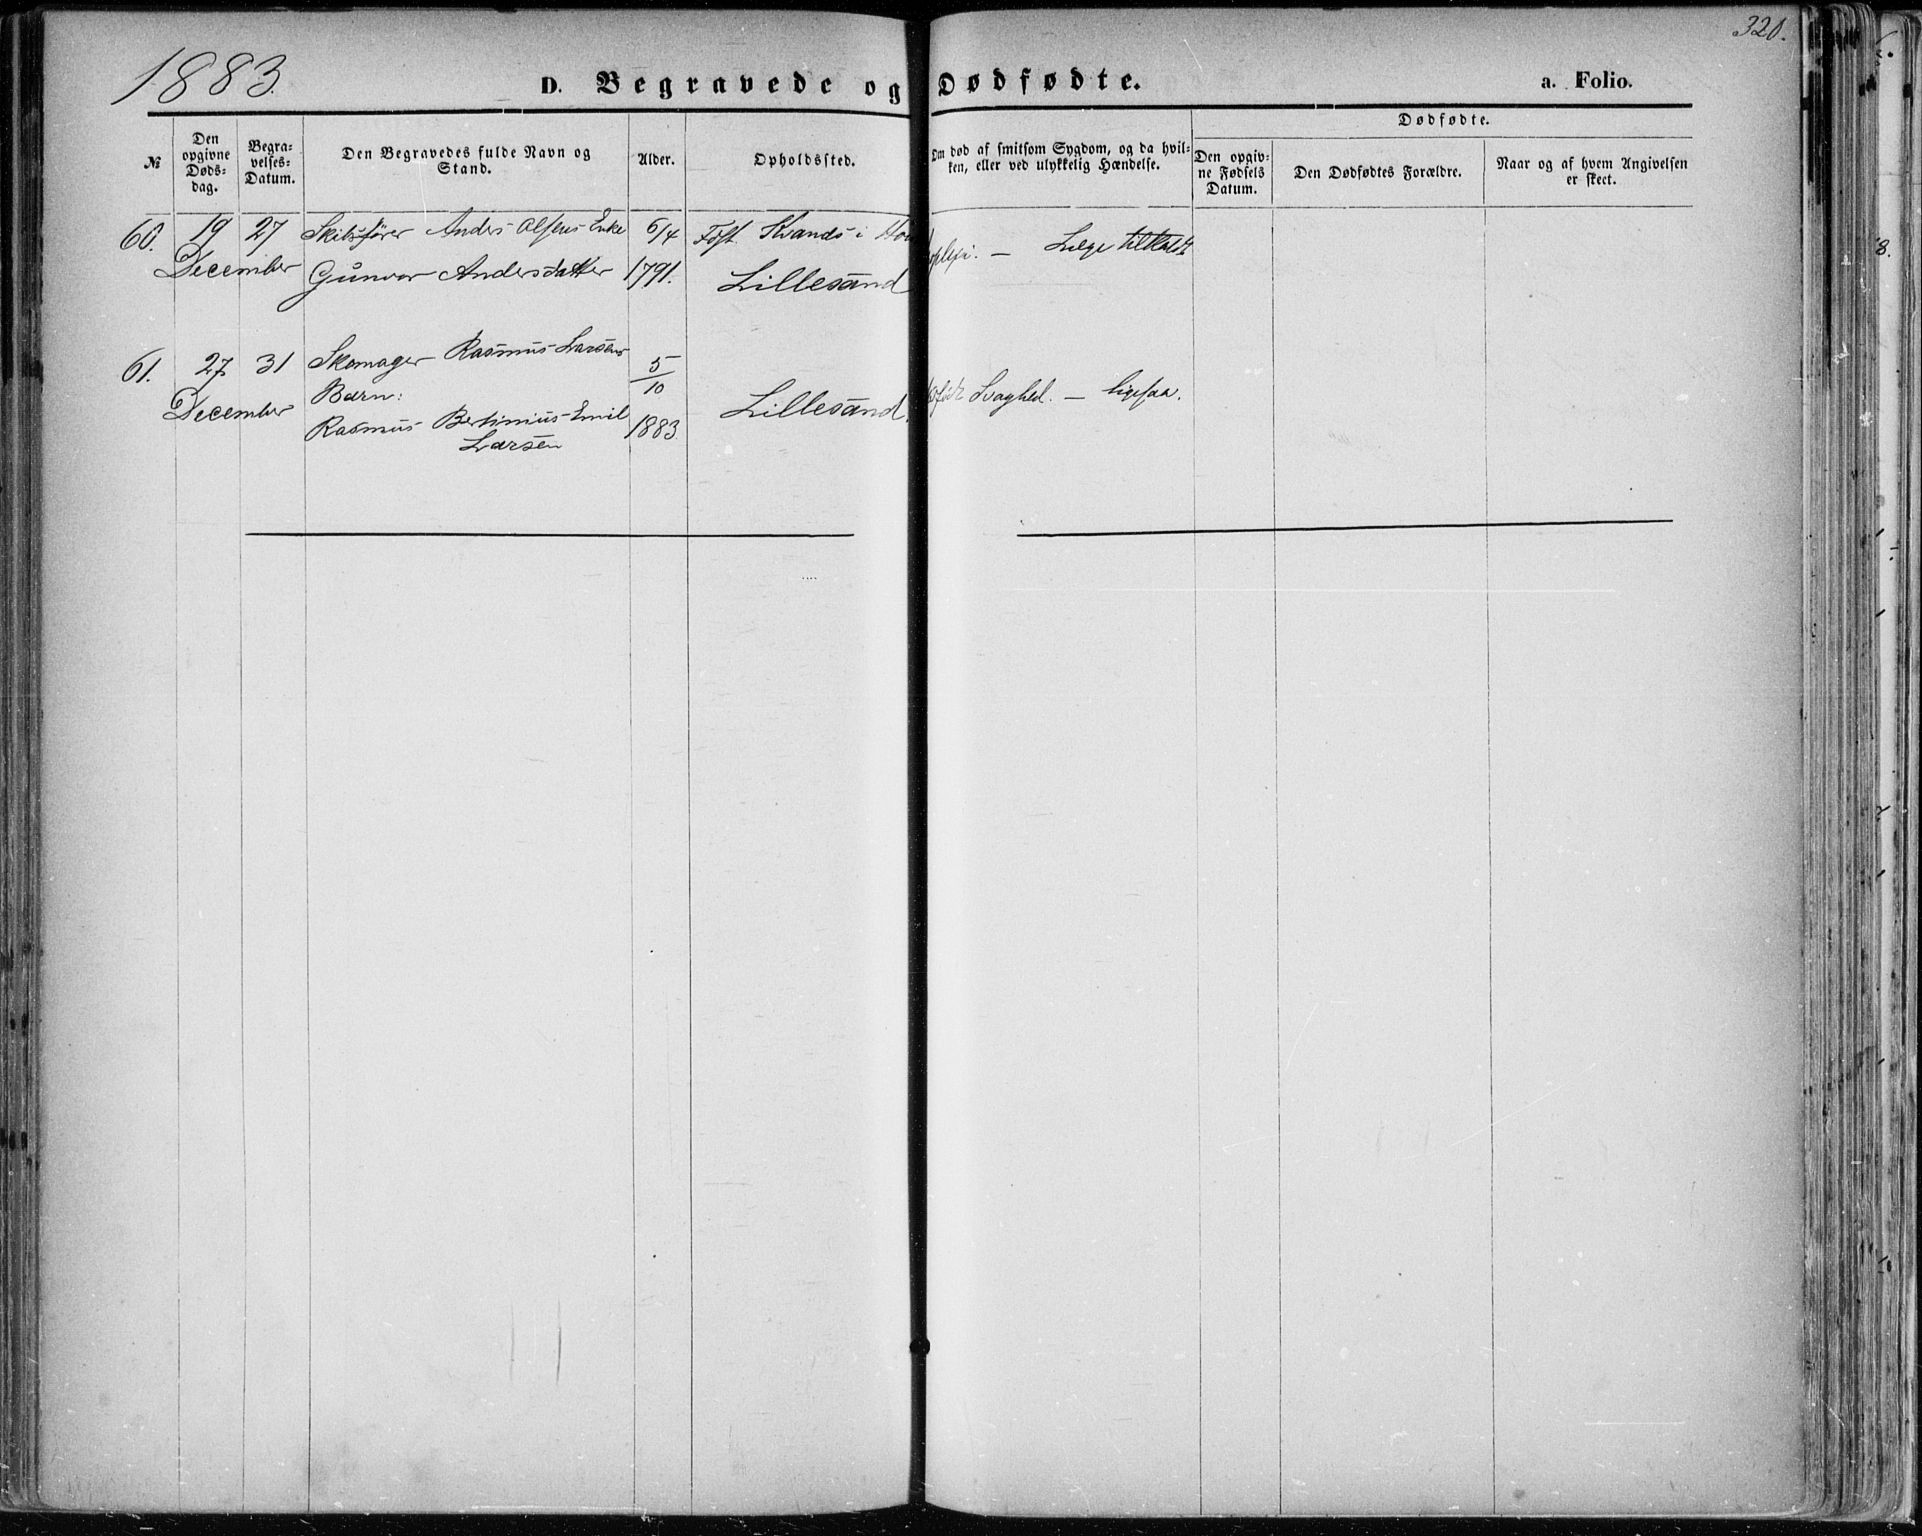 320.
1883.
D. Begravede og Dødfødte.
a. Folio.
№
Den opgivne Døds-dag.
Begra-velses-Datum.
Den Begravedes fulde Navn og Stand.
Alder.
Opholdssted.
Om død af smitsom Sygdom, og da hvil-ken, eller ved ulykkelig Hændelse.
Dødfødte.
Den opgiv-ne Fødsels Datum.
Den Dødfødtes Forældre.
Naar og af hvem Angivelsen er skeet.
60. 19 27 Skibsfører Anders Olsens Enke 6/4 Født i
Læge tilkaldt
December Gunvor Andersdatter 1791. Lillesand
61. 27 31 Skomager Rasmus Larsens 5/10
December Barn: Lillesand. Svaghed. — ligesaa.
Rasmus Emil 1883
Larsen